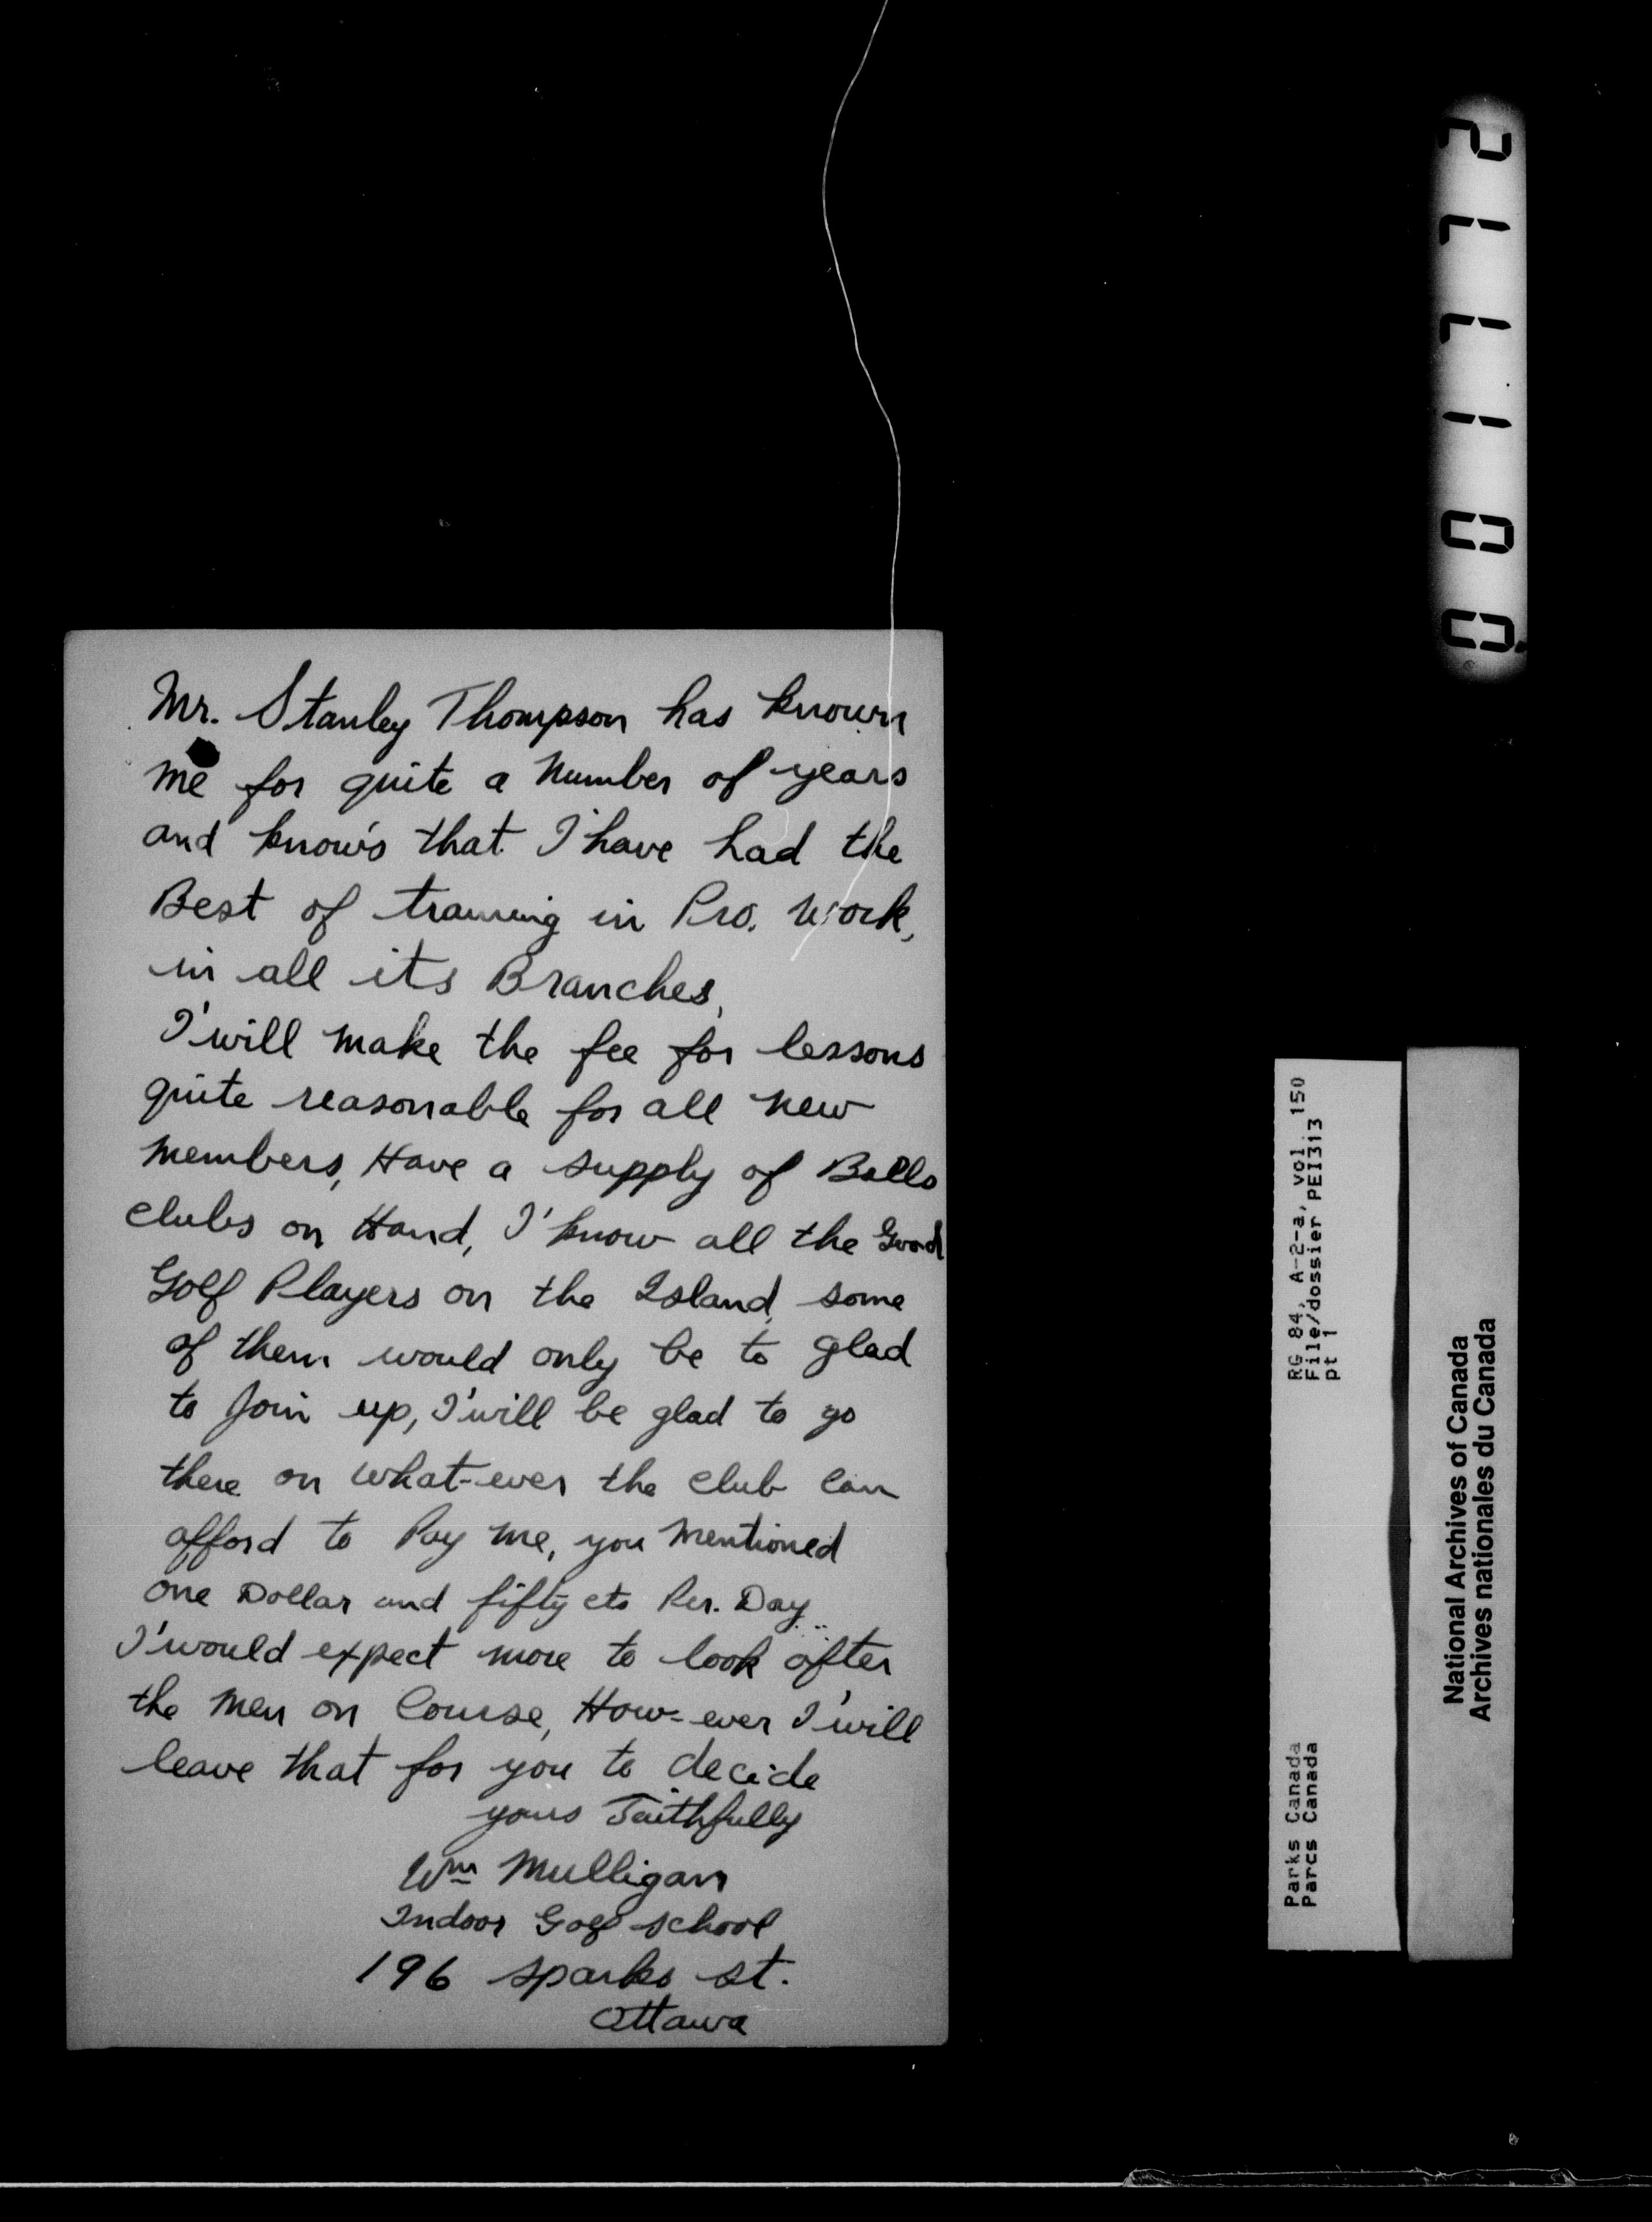 Mr. Stanley Thompson has known
me for quite a number of years
and know's that I'have had the
Best of training in Pro. work,
in all its Branches,
I'will make the fee for lessons
quite reasonable for all new
members, Have a supply of Balls
clubs on Hand, I'know all the Good
Golf Players on the Island, some
of them would only be to glad
to Join up, I'will be glad to go
there on what-ever the club can
afford to Pay me, you mentioned
one Dollar and fifty cts Per. Day
I'would expect more to look after
the men on Course, How-ever I'will
leave that for you to decide
yours Faithfully
Wm Mulligan
Indoor Golf school
196 sparks st.
Ottawa
211100
RG 84, A-2-a, vol. 150
File/dossier PEI313
pt 1
Parks Canada
Parcs Canada
National Archives of Canada
Archives nationales du Canada